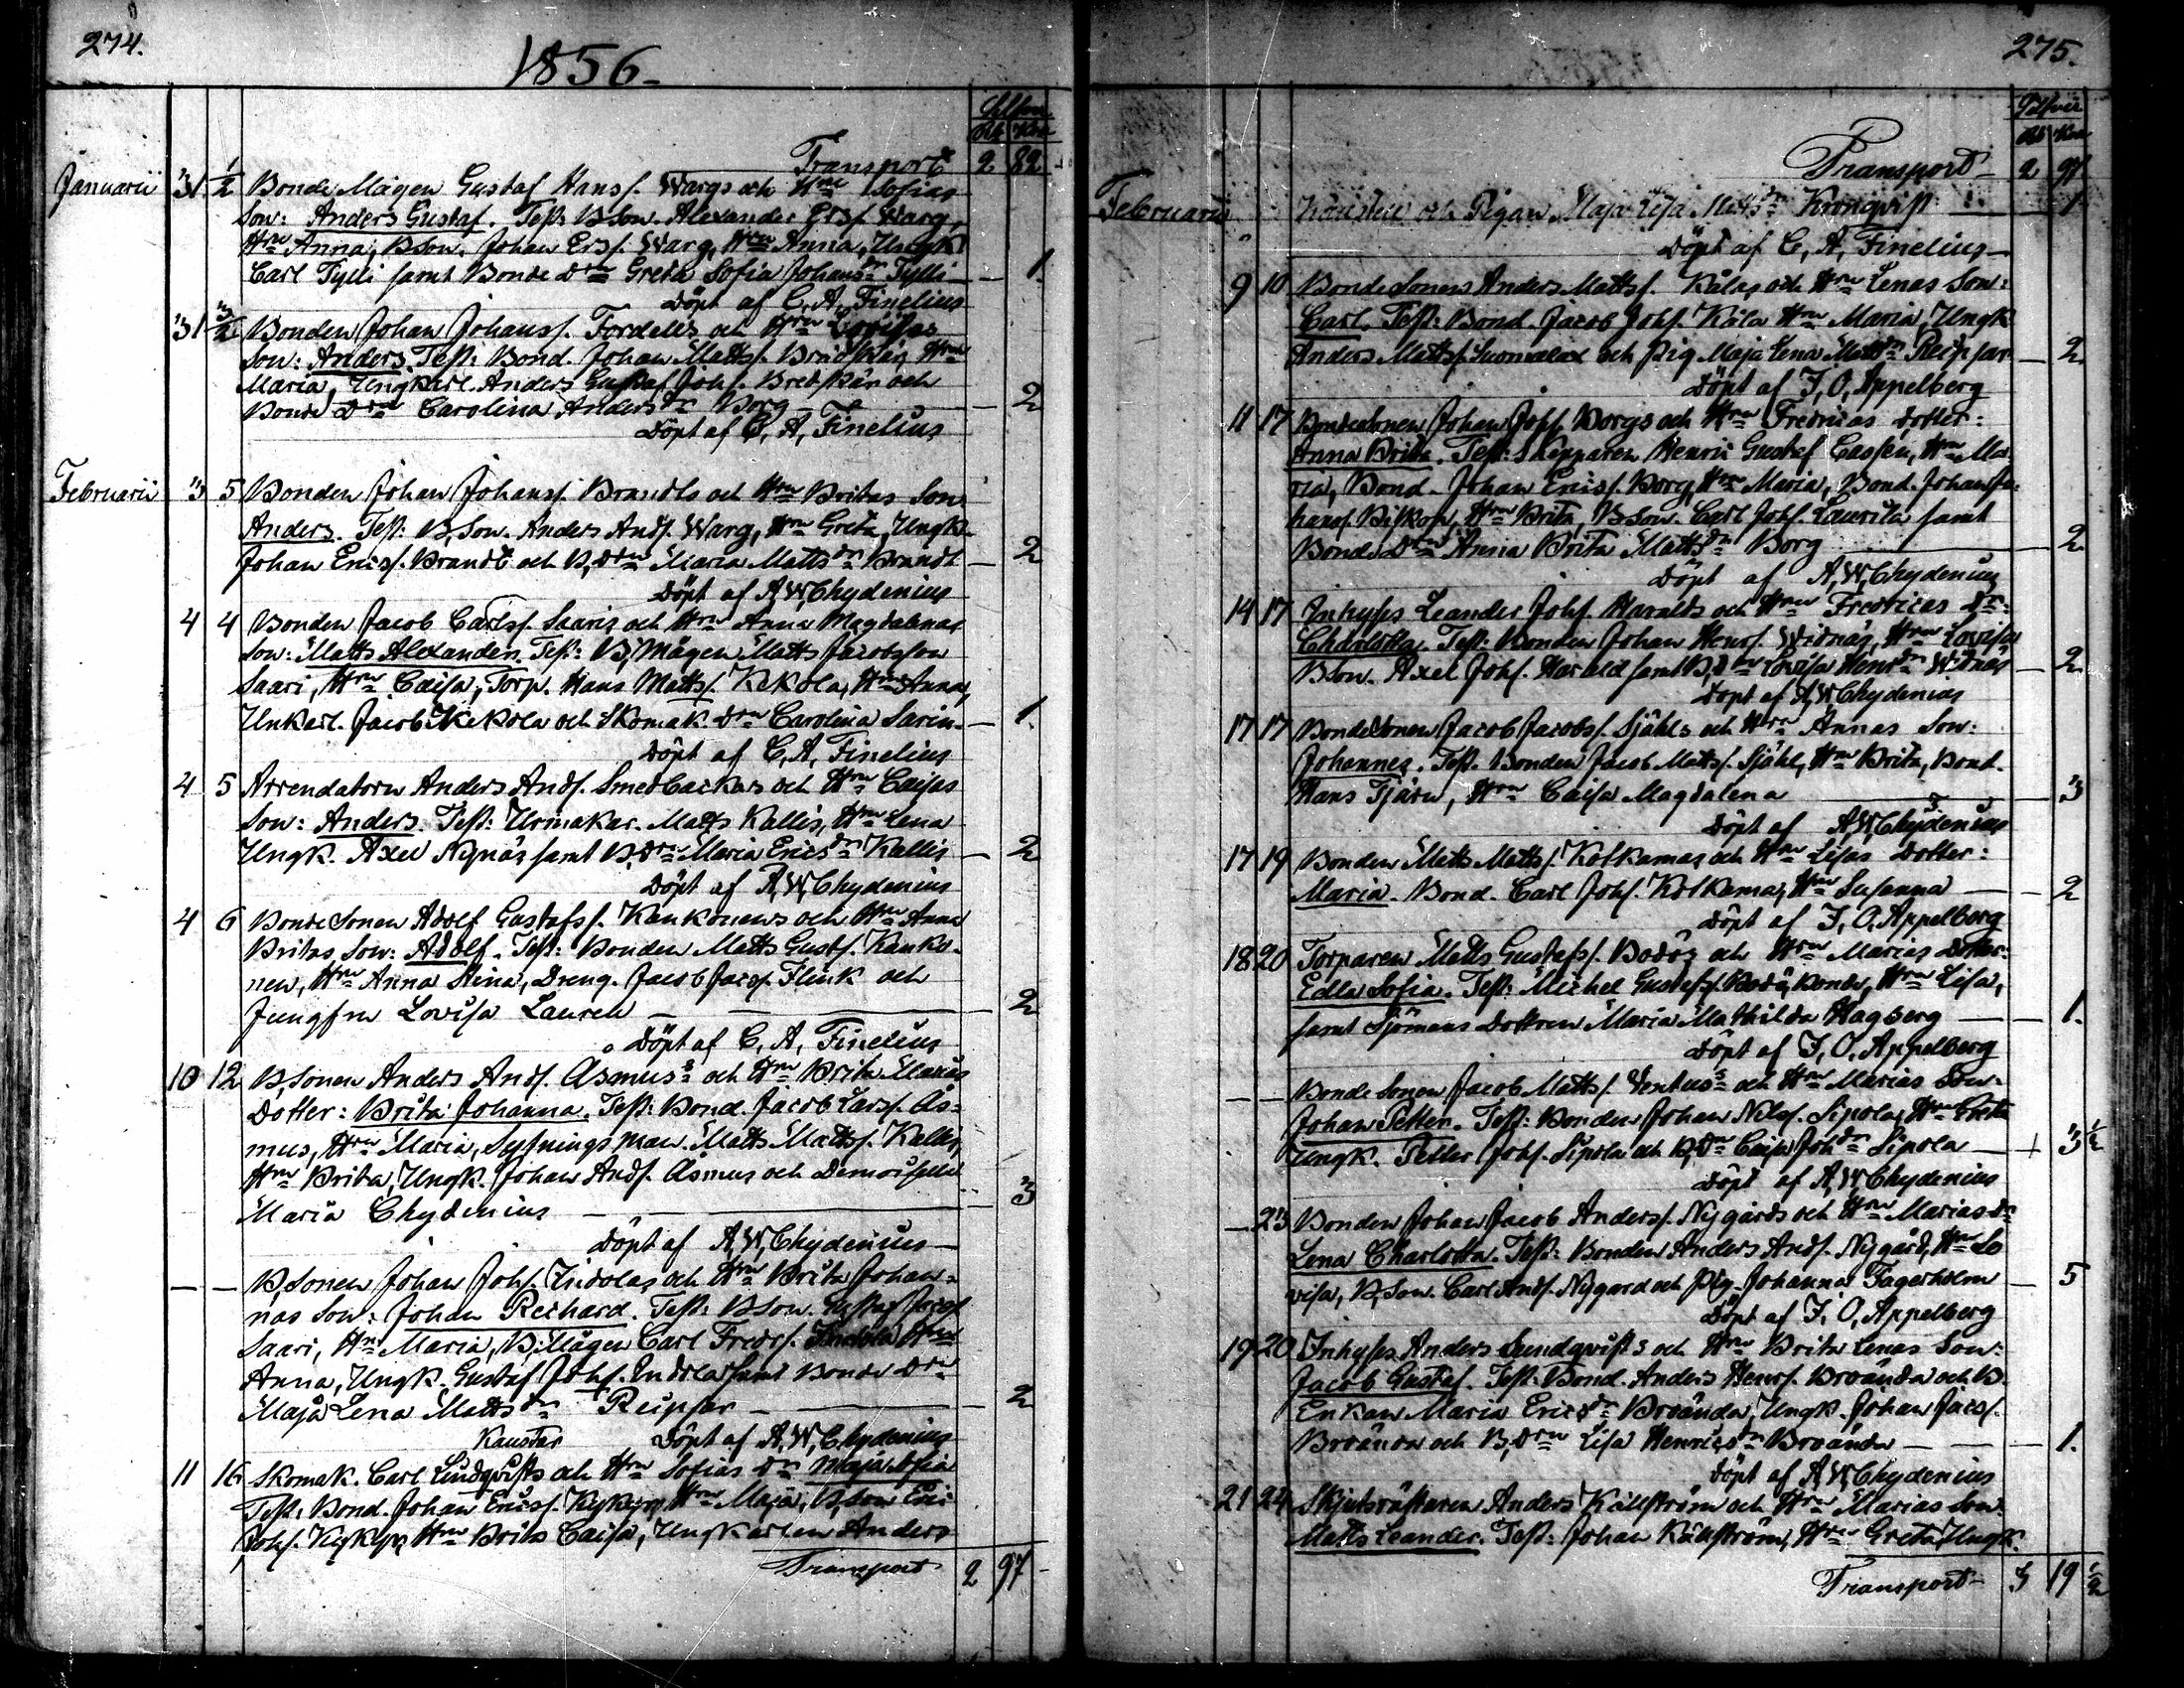 274.
1856
Rb Kop
Transport 2 82
Januarii 31 1/2 Bonde Mågen Gustaf Hansf. Wargs och Hru Sofias
Son: Anders Gustaf. Test: BSon. Alexander Ersf Warg,
Hru Anna, BSon. Johan Ersf. Warg, Hru Anna, Ungk.
Carl Tylli samt Bonde Dra Greta Sofia Johansdr Tylli — 1.
Döpt af C. A. Finelius
31 3/2 Bonden Johan Johansf. Fordells och Hru Lovisas
Son: Anders. Test: Bond. Johan Mattsf. Bredskär, Hru
Maria, Ungkarl. Anders Gustaf Johf. Bredskär och
Bonde Dra Carolina Andersdr Borg — 2
Döpt af C. A. Finelius
Februarii 3 5 Bonden Johan Johansf. Brandts och Hru Britas Son:
Anders. Test: B.Son. Anders Andf. Warg, Hru Greta, Ungk.
Johan Ericsf. Brandt och B.Dra Maria Mattsdr Brandt — 2
Döpt af A. W. Chydenius
4 4 Bonden Jacob Carlsf. Saaris och Hru Anna Magdalenas
Son: Matts Alexander. Test: B.Mågen Matts Jacobsson
Saari, Hru Caisa, Torp. Hans Mattsf. Kekola, Hru Anna,
Unkarl. Jacob Kekola och Skomak. Dra Carolina Sarin — 1.
Döpt af C. A. Finelius
4 5 Arrendatorn Anders Andf. Smedbackas och Hru Caisas
Son: Anders. Test: Urmakar. Matts Kallis, Hru Lena
Ungk. Axel Nynäs samt B.Dra Maria Ericsdr Kallis — 2
Döpt af A. W. Chydenius
4 6 BondeSonen Adolf Gustafsf. Kankonens och Hru Anna
Britas Son: Adolf. Test: Bonden Matts Gustf. Kanko-
nen, Hru Anna Stina, Dreng. Jacob Jacof. Flink och
Jungfru Lovisa Lauren — 2
Döpt af C. A. Finelius
10 12 B.Sonen Anders Andf. Asmus's och Hru Brita Marias
Dotter: Brita Johanna. Test: Bond. Jacob Larsf. As-
mus, Hru Maria, Sytningsman. Matts Mattsf. Kallis,
Hru Brita, Ungk. Johan Andf. Asmus och Demoiselle
Maria Chydenius — 3
Döpt af A. W. Chydenius —
— — B.Sonen Johan Johf. Indolas och Hru Brita Johan-
nas Son: Johan Reichard. Test: BSon. Gustaf Jacof
Saari, Hru Maria, B.Mågen Carl Fredrf. Indola Hru
Anna, Ungk. Gustaf Johf. Indola samt Bonde Dra
Maja Lena Mattsdr Reipsar — 2
Kaustar Döpt af A. W. Chydenius
11 16 Skomak. Carl Lindqvists och Hru Sofias Dr Maja Sofia
Test: Bond. Johan Ericsf. Kykyri, Hru Maja, B.Son Eric
Johf. Kykyri, Hru Brita Caisa, Ungkarlen Anders
Transport 2 97
275.
Rb Kop
Transport 2 97
Februarii och Pigan Maja Lisa Mattsdr Kronqvist — 1
Döpt af C. A. Finelius
9 10 Bonde Sonen Anders Mattsf. Kålas och Hru Lenas Son:
Carl. Test: Bond. Jacob Johf. Kåla Hru Maria, Ungk
Anders Mattsf. och Pig Maja Lena Mattsdr Reipsar — 2
Döpt af J. O. Appelberg
11 17 BondeSonen Johan Johf. Borgs och Hru Fredricas Dotter:
Anna Brita. Test: Skepparen Henric Gustaf Cassen, Hru Ma-
ria, Bond. Johan Ericsf. Borg, Hru Maria, Bond. Johan Jo-
hansf. Biskop, Hru Brita, B.Son. Carl Johf. Laurila samt
Bonde Dra Anna Brita Mattsdr Borg — 2
Döpt af A. W. Chydenius
14 17 Inhyses Leander Johf. Haralds och Hru Fredricas Dr:
Charlotta. Test: Bonden Johan Henrf. Widnäs, Hru Lovisa
BSon. Axel Johf. Harald samt B.Dra Lovisa Henrdr Widnäs — 2
Döpt af A. W. Chydenius
17 17 BondeSonen Jacob Jacobsf. Sjähls och Hru Annas Son:
Johannes. Test. Bonden Jacob Mattsf. Sjähl, Hru Brita, Bond.
Hans Tjäru, Hru Caisa Magdalena — 3
Döpt af A. W. Chydenius
17 19 Bonden Matts Mattsf. Kotkamas och Hru Lisas Dotter:
Maria. Bond. Carl Johf. Kotkama, Hru Susanna — 2
Döpt af J. O. Appelberg
18 20 Torparen Matts Gustafsf. Bodös och Hru Marias Dotter:
Edla Sofia. Test: Michel Gustafsf. Bodö, Bonde, Hru Lisa,
samt Sjömans Dottren Maria Mathilda Hagberg — 1.
Döpt af J. O. Appelberg
— — Bonde Sonen Jacob Mattsf. Ventus's och Hru Marias Son:
Johan Petter. Test: Bonden Johan Nilsf. Sipola, Hru Greta
Ungk. Petter Johf. Sipola och B.Dra Caisa Johdr Sipola — 3 1/2
Döpt af A. W. Chydenius
— 23 Bonden Johan Jacob Andersf. Nygårds och Hru Marias Dr
Lena Charlotta. Test: Bonden Anders Andf. Nygård, Hru Lo
visa, B.Son. Carl Andf. Nygård och Pig. Johanna Fagerholm — 5
Döpt af J. O. Appelberg
19 20 Inhyses Anders Sundqvists och Hru Brita Lenas Son:
Jacob Gustaf. Test. Bond. Anders Henrf. Broända och B.
Enkan Maria Ericsdr Broända, Ungk. Johan Jacsf.
Broända och B.Dra Lisa Henricsdr Broända — 1.
Döpt af A. W. Chydenius
21 24 Skjutsrättaren Anders Källström och Hru Marias Son.
Matts Leander. Test: Johan Källström, Hru Greta, Ungk.
Transport 3 19 1/2